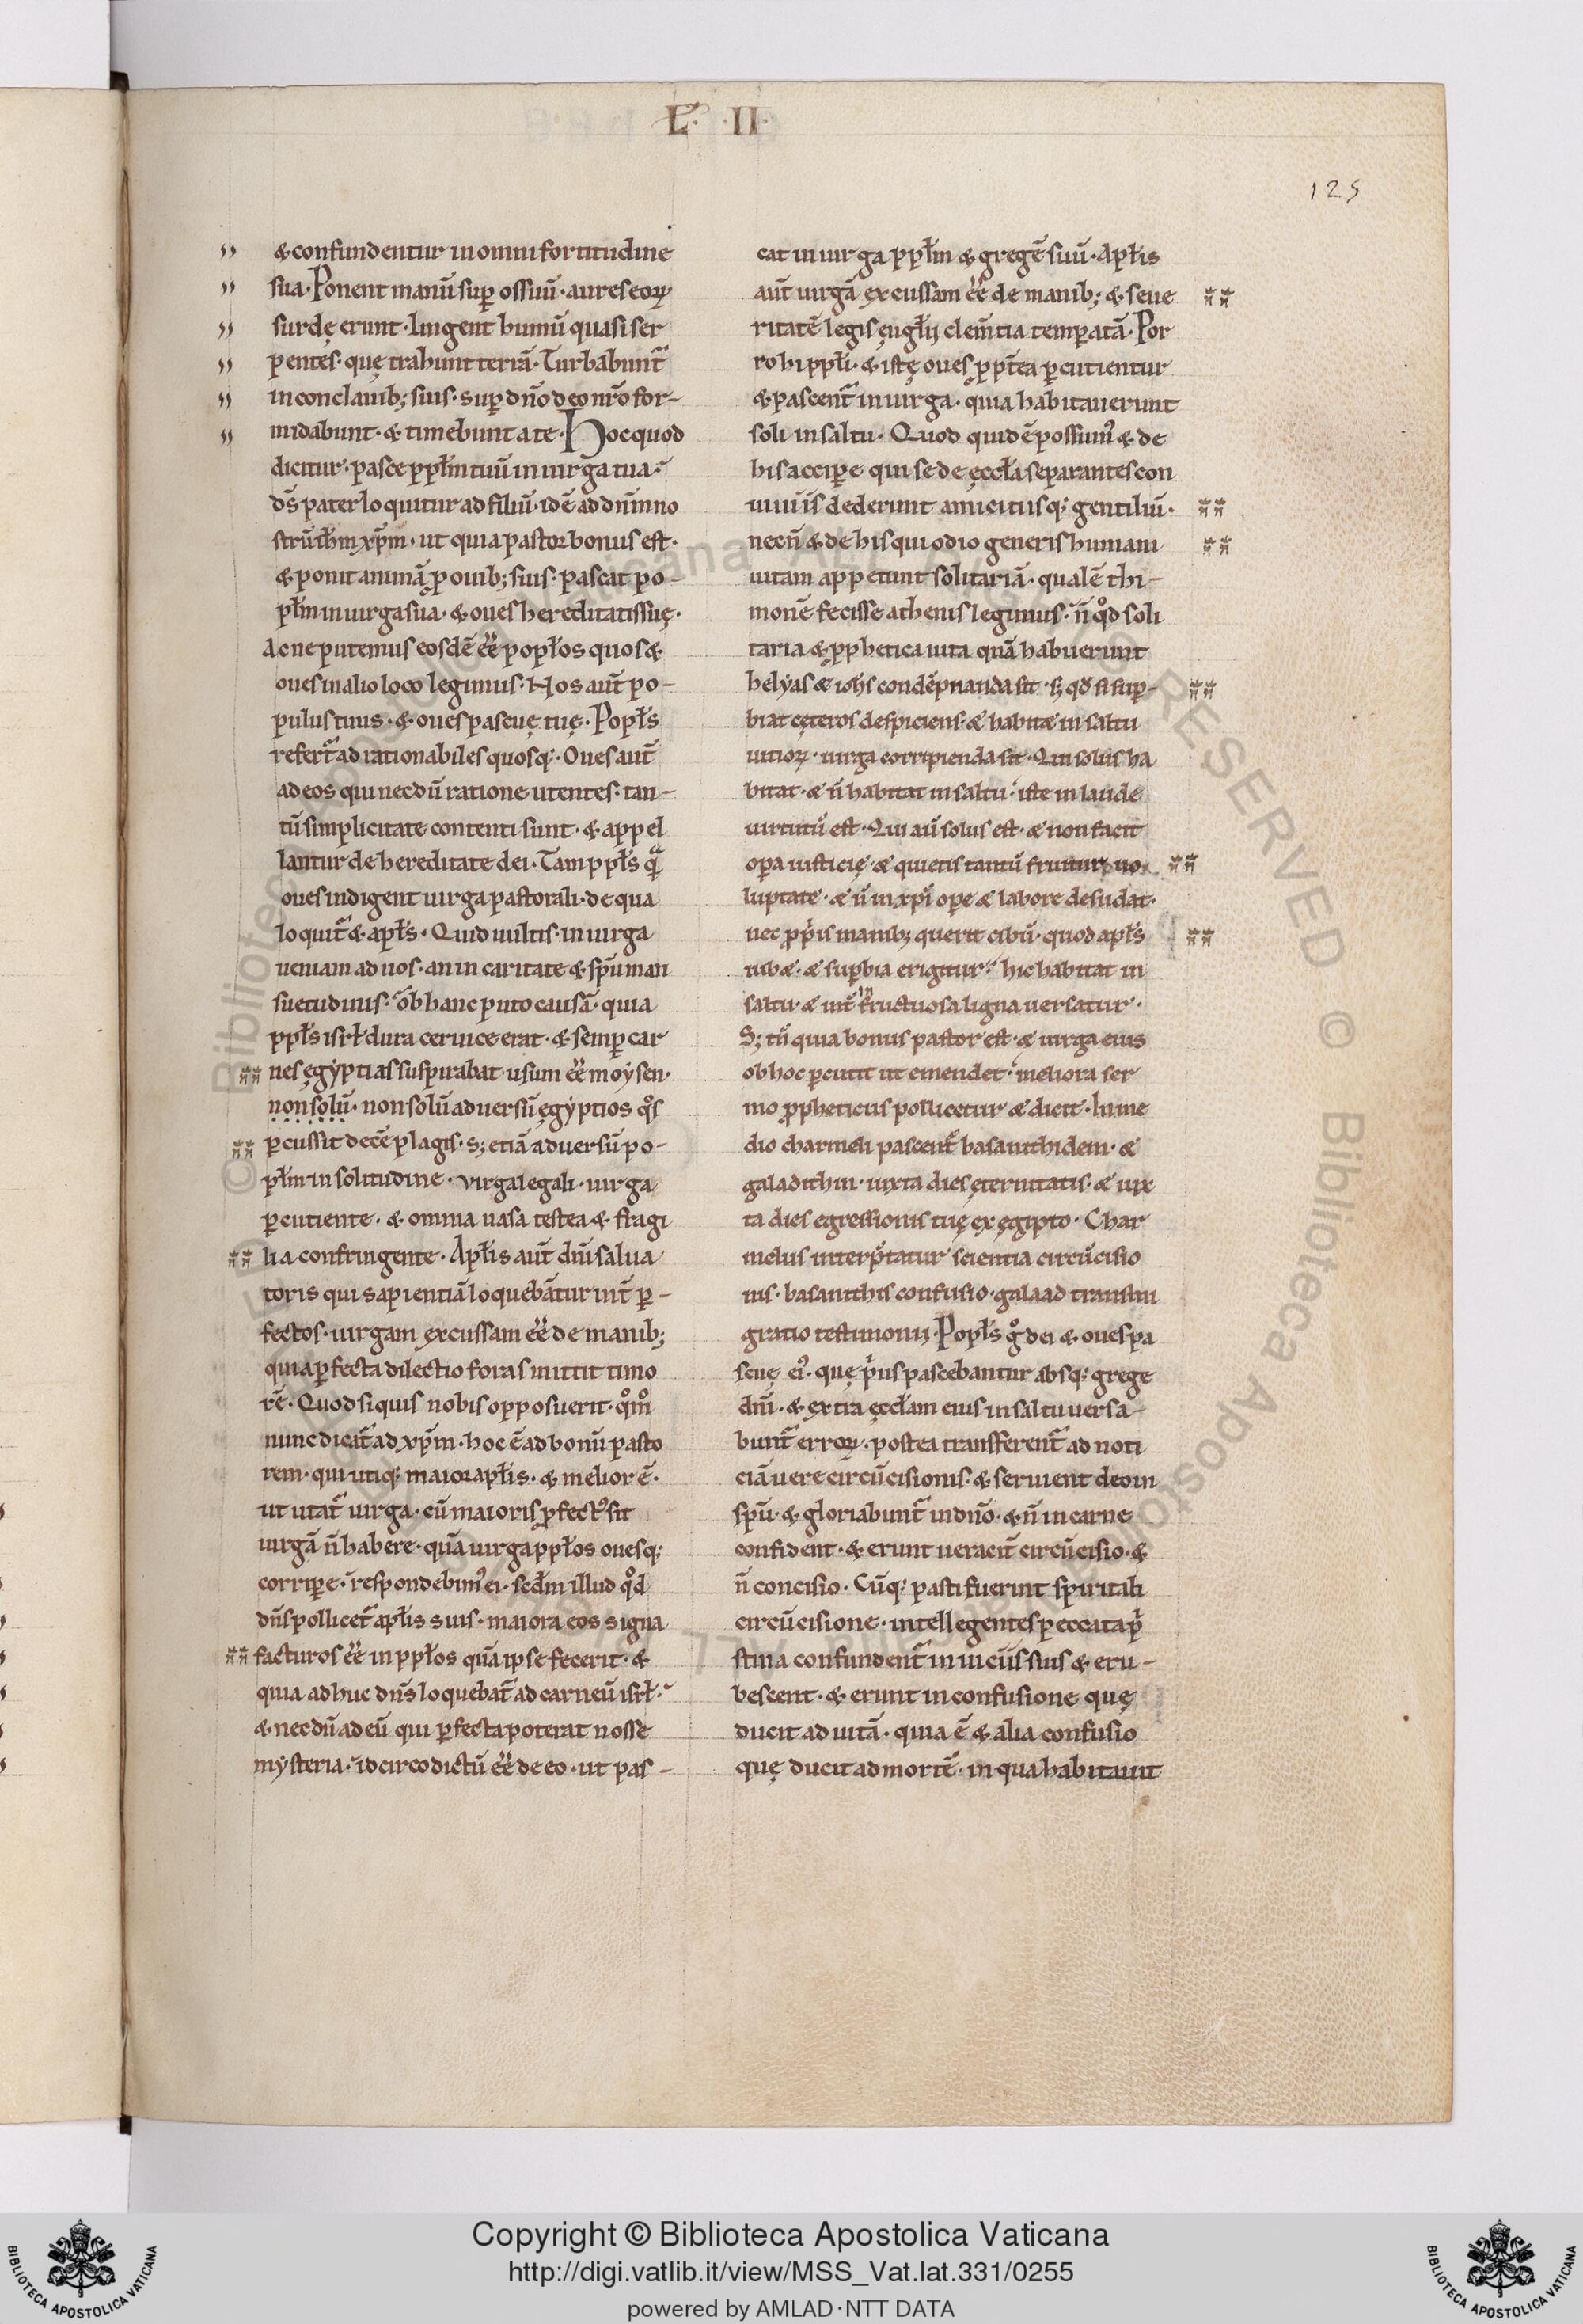 L̅· ·II·
125
& confundentur in omni fortitudine
sua· Ponent manū sup̲ os suū· aures eoꝝ
surdę erunt· lingent humū quasi ser
pentes· quę trahunt terrā· Turbabunt᷑
in conclauib; suis· sup̲ dn̄o deo nr̄o for-
midabunt· & timebunt a te· Hoc quod
dicitur· pasce pp̄lm tuū in uirga tua·
ds̄ pater loquitur ad filiū· idē ad dn̄m no
strū ih̄m xp̄m· ut quia pastor bonus est·
& ponit animā ꝓ ouib; suis· pascat po-
pl̄m in uirga sua· & oues hereditatis suę·
Ac ne putemus eosdē ēē popl̄os quos &
oues in alio loco legimus· Nos aut̄ po-
pulus tuus· & oues pascuę tuę· Popl̄s
refert᷑ ad rationabiles quosq;· Oues aut̄
ad eos qui necdū ratione utentes· tan-
tū simplicitate contenti sunt· & appel
lantur de hereditate dei· Tam ppl̄s qͣ̄
oues indigent uirga pastorali· de qua
loquit᷑ & apl̄s· Quid uultis· in uirga
ueniam ad uos· an in caritate & sp̄u man
suetudinis· ob hanc puto causā· quia
ppl̄s isrl̄ dura ceruice erat· & semp̲ car
nes ęgyptias suspirabat· usum ēē moysen·
non solū· non solū aduersū ęgyptios qͦs
p̲cussit decē plagis· s; etiā aduersū po-
pl̄m in solitudine· virga legali· uirga
p̲cutiente· & omnia uasa testea & fragi
lia confringente· Apl̄is aut̄ dn̄i salua
toris qui sapientiā loquebantur int̄ p̲-
fectos· uirgam excussam ēē de manib;
quia p̲fecta dilectio foras mittit timo
rē· Quod si quis nobis opposuerit· qͦm̊
nunc dicat᷑ ad xp̄m· hoc ē ad bonū pasto
rem· qui utiq; maior apl̄is· & melior ē·
ut utat᷑ uirga· cū maioris p̲fectꝰ sit
uirgā n̄ habere· quā uirga ppl̄os ouesq;
corripe̲· respondebimꝰ ei· scd̄m illud qͦd
dn̄s pollicet᷑ apl̄is suis· maiora eos signa
facturos ēē in ppl̄os quā ipse fecerit· &
quia adhuc dn̄s loquebat᷑ ad carneū isrl̄·
& necdū ad eū qui p̲fecta poterat nosse
mysteria· idcirco dictū ēē de eo· ut pas-
cat in uirga ppl̄m & gregē suū· Apl̄is
aut̄ uirgā excussam ēē de manib; & seue
ritatē legis ęugl̄ij clem̄tia temp̲atā· Por
ro hi ppl̄i· & istę oues ꝓpt̄ea p̲cutientur
& pascent᷑ in uirga· quia habitauerunt
soli in saltu· Quod quidē possumꝰ & de
his accipe̲ qui se de ęccl̄a separantes con
uiuiis dederunt amicitiisq; gentiliū·
necn̄ & de his qui odio generis humani
uitam appetunt solitariā· qualē thi-
monē fecisse athenis legimus· n̄ qͦd soli
taria & ꝓphetica uita quā habuerunt
helyas & ioh̄s condēpnanda sit· s; qd̄ si sup̲-
biat cęteros despiciens· & habit& in saltu
uitioꝝ· uirga corripienda sit· Qui solus ha
bitat· & n̄ habitat in saltu· iste in laude
uirtutū est· Qui aū solus est· & non facit
op̲a iusticię· & quietis tantū fruitur uo
luptate· & n̄ in xp̄i ope̲ & labore desudat·
nec ꝓp̄is manib; querit cibū· quod apl̄s
iub&· & sup̲bia erigitur· hic habitat in
saltu· & int̄ infructuosa ligna uersatur·
S; tn̄ quia bonus pastor est· & uirga eius
ob hoc p̲cutit ut emendet· meliora ser
mo ꝓpheticus pollicetur & dicit· In me
dio charmeli pascent᷑ basanithidem· &
galadithin· iuxta dies ęternitatis· & iux
ta dies egressionis tuę ex ęgipto· Char
melus interp̄tatur scientia circūcisio
nis· basanithis confusio· galaad transmi
gratio testimonij· Popl̄s gͦ dei & oues pa
scuę eiꝰ· quę p̄us pascebantur absq; grege
dn̄i· & extra ęccl̄am eius in saltu uersa-
bunt᷑ erroꝝ· postea transferent᷑ ad noti
ciā uere circūcisionis· & seruient deo in
sp̄u· & gloriabunt᷑ in dn̄o· & n̄ in carne
confident· & erunt ueracit̄ circūcisio· &
n̄ concisio· Cūq; pasti fuerint spiritali
circūcisione· intellegentes peccata p̄
stina confundent᷑ in uiciis suis & eru-
bescent· & erunt in confusione quę
ducit ad uitā· quia ē & alia confusio
quę ducit ad mortē· in qua habitauit
Copyright © Biblioteca Apostolica Vaticana
http://digi.vatlib.it/view/MSS_Vat.lat.331/0255
powered by AMLAD·NTT DATA